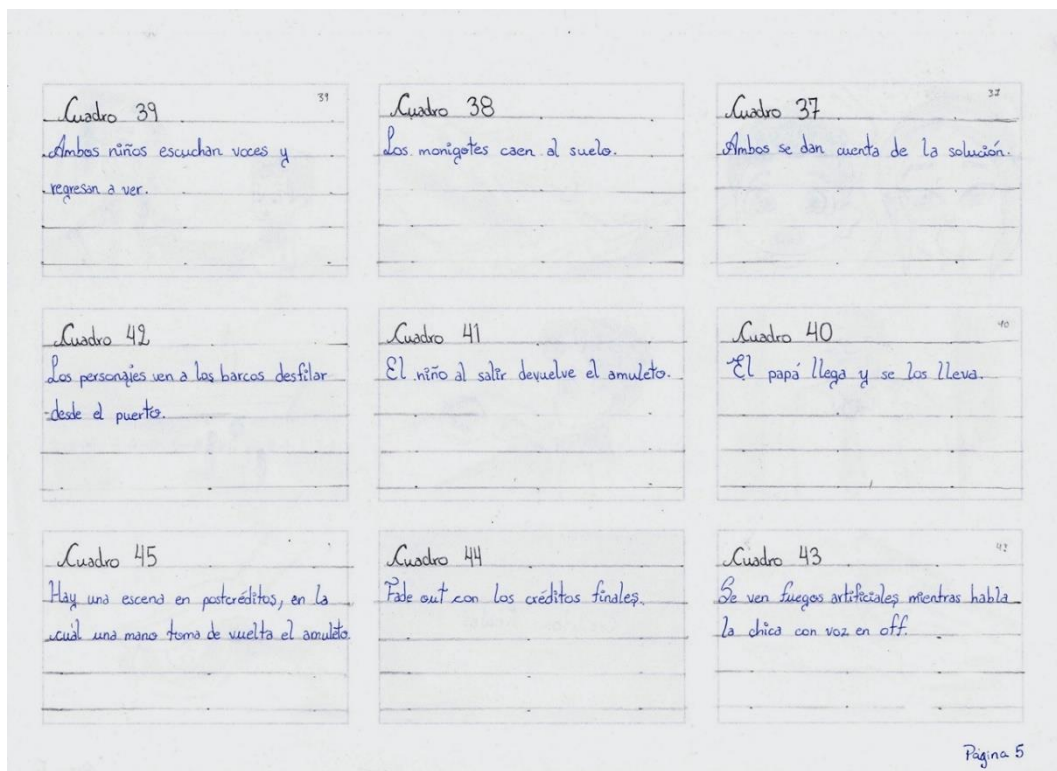 Cuadro 39
39
Ambos niños escuchan voces y
regresan a ver.
Cuadro 38
Los monigotes caen al suelo.
Cuadro 37
37
Ambos se dan cuenta de la solución.
Cuadro 42
Los personajes ven a los barcos desfilar
desde el puerto.
Cuadro 41
El niño al salir devuelve el amuleto.
Cuadro 40
40
El papá llega y se los lleva.
Cuadro 45
Hay una escena en postcréditos, en la
cuál una mano toma de vuelta el amuleto.
Cuadro 44
Fade out con los créditos finales.
Cuadro 43
43
Se ven fuegos artificiales mientras habla
la chica con voz en off.
Página 5